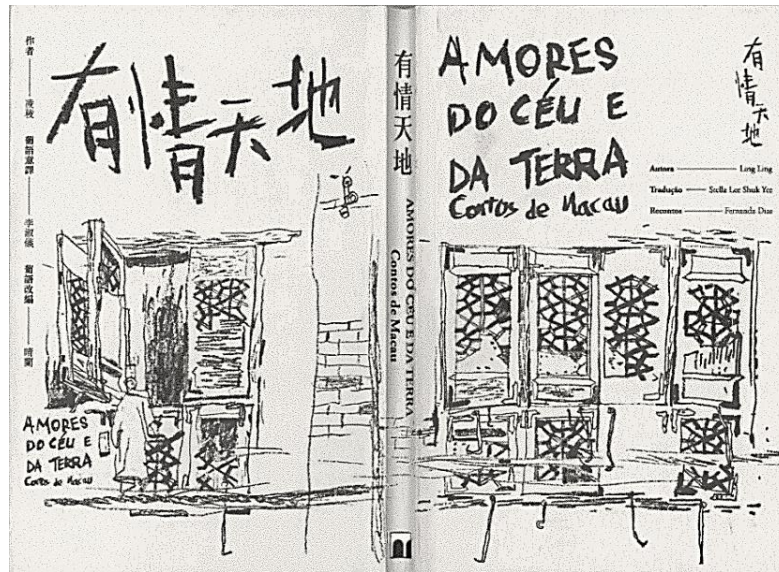 有情天地
作者 —— 凌稜 葡語意譯 —— 李淑儀 葡語改編 —— 晴蘭
AMORES
DO CÉU E
DA TERRA
Contos de Macau
有情天地 AMORES DO CÉU E DA TERRA
Contos de Macau
AMORES
DO CÉU E
DA TERRA
Contos de Macau
有情天地
Autora —— Ling Ling
Tradução —— Stella Lee Shuk Yee
Recontos —— Fernanda Dias